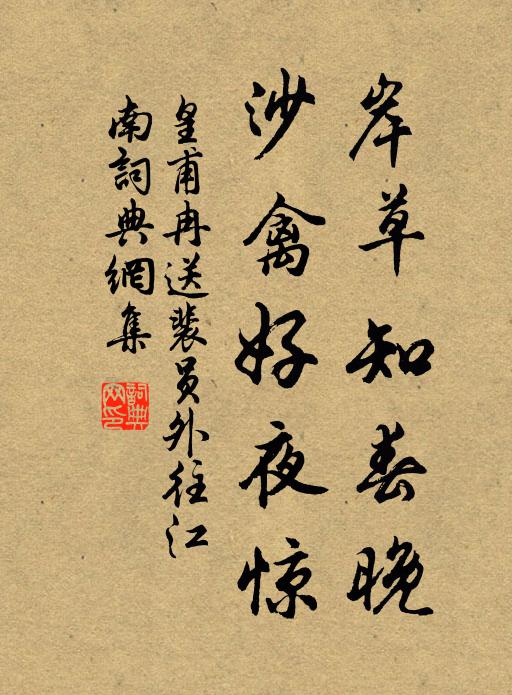 岸草知春晚
沙禽好夜惊
皇甫冉送裴员外往江
南詞典網集
詞典网印